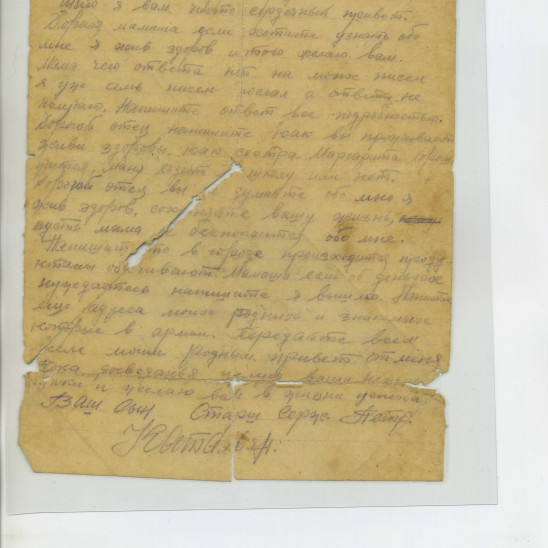 Шлю я вам чисто сердечный привет.
Дорогая мамаша если хотите узнать обо
мне я жив здоров и того желаю вам.
чего ответа нет на моих писем
я уже семь писем послал а ответа не
получаю. Напишите ответ все подробностью.
Дорогой отец напишите как вы проживаете
живы здоровы, как сестра Маргарита
Маня ходит школу или нет.
Дорогой отец вы не думайте обо мне я
жив здоров, сохраните вашу жизнь,
пусть мама не беспокоится обо мне.
Напишите что в городе происходит,
Мамаша если вы деньгах
нуждаетесь напишите я вышлю. Напишите
еще адреса моих родных и знакомых
которые в армии. Передайте всем
всем моим родным привет от меня
Пока досведанья целую ваши
и желаю вам в жизни
Ваш Сын. Старш Серж. Петр.